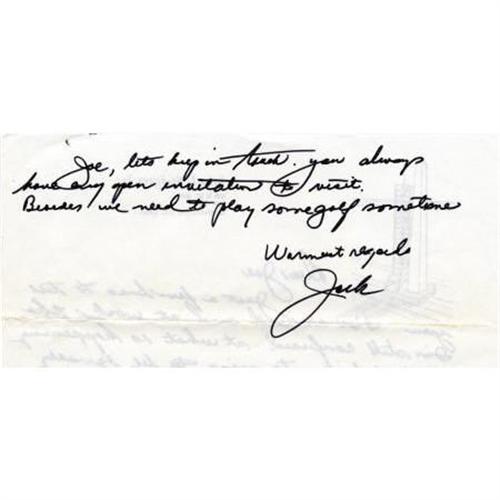 Joe, lets keep in touch. you always
have any open invitation to visit.
Besides we need to play some golf sometime
Warmest regards
Jack